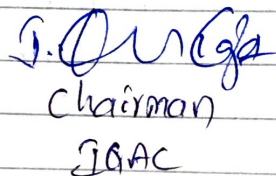 Chairman
IQAC